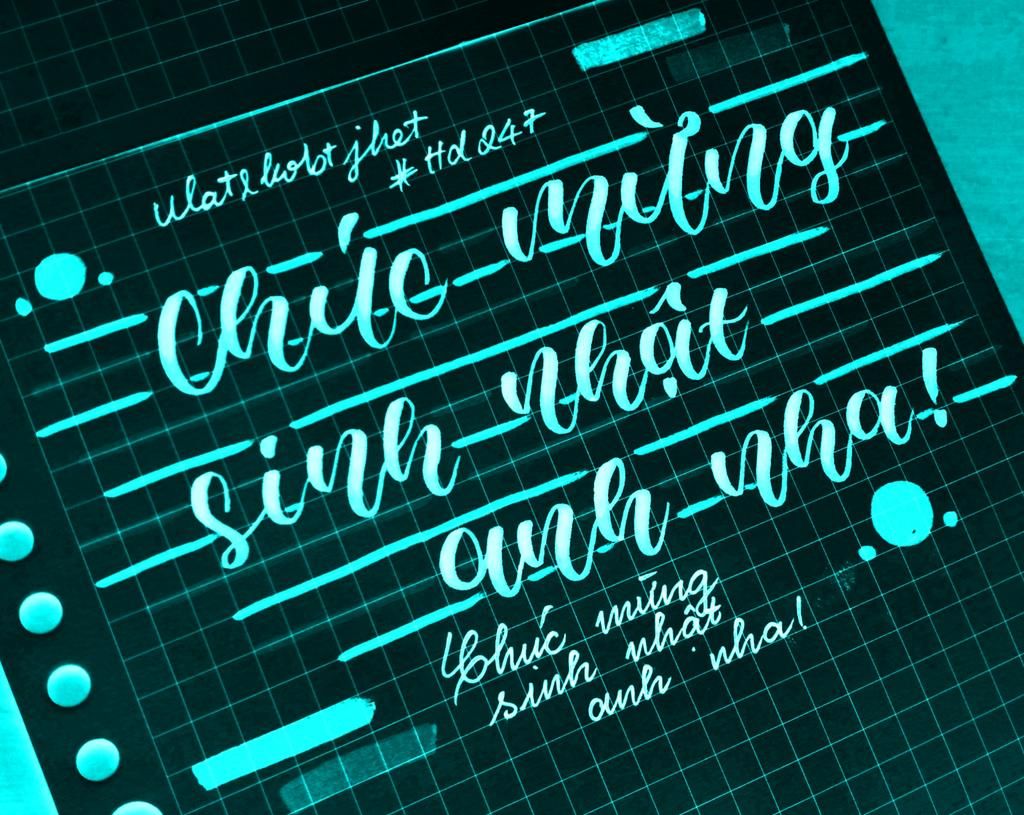 * Hd 247
Chúc mừng
sinh nhật
anh nha!
Chúc mừng
sinh nhật
anh nha!